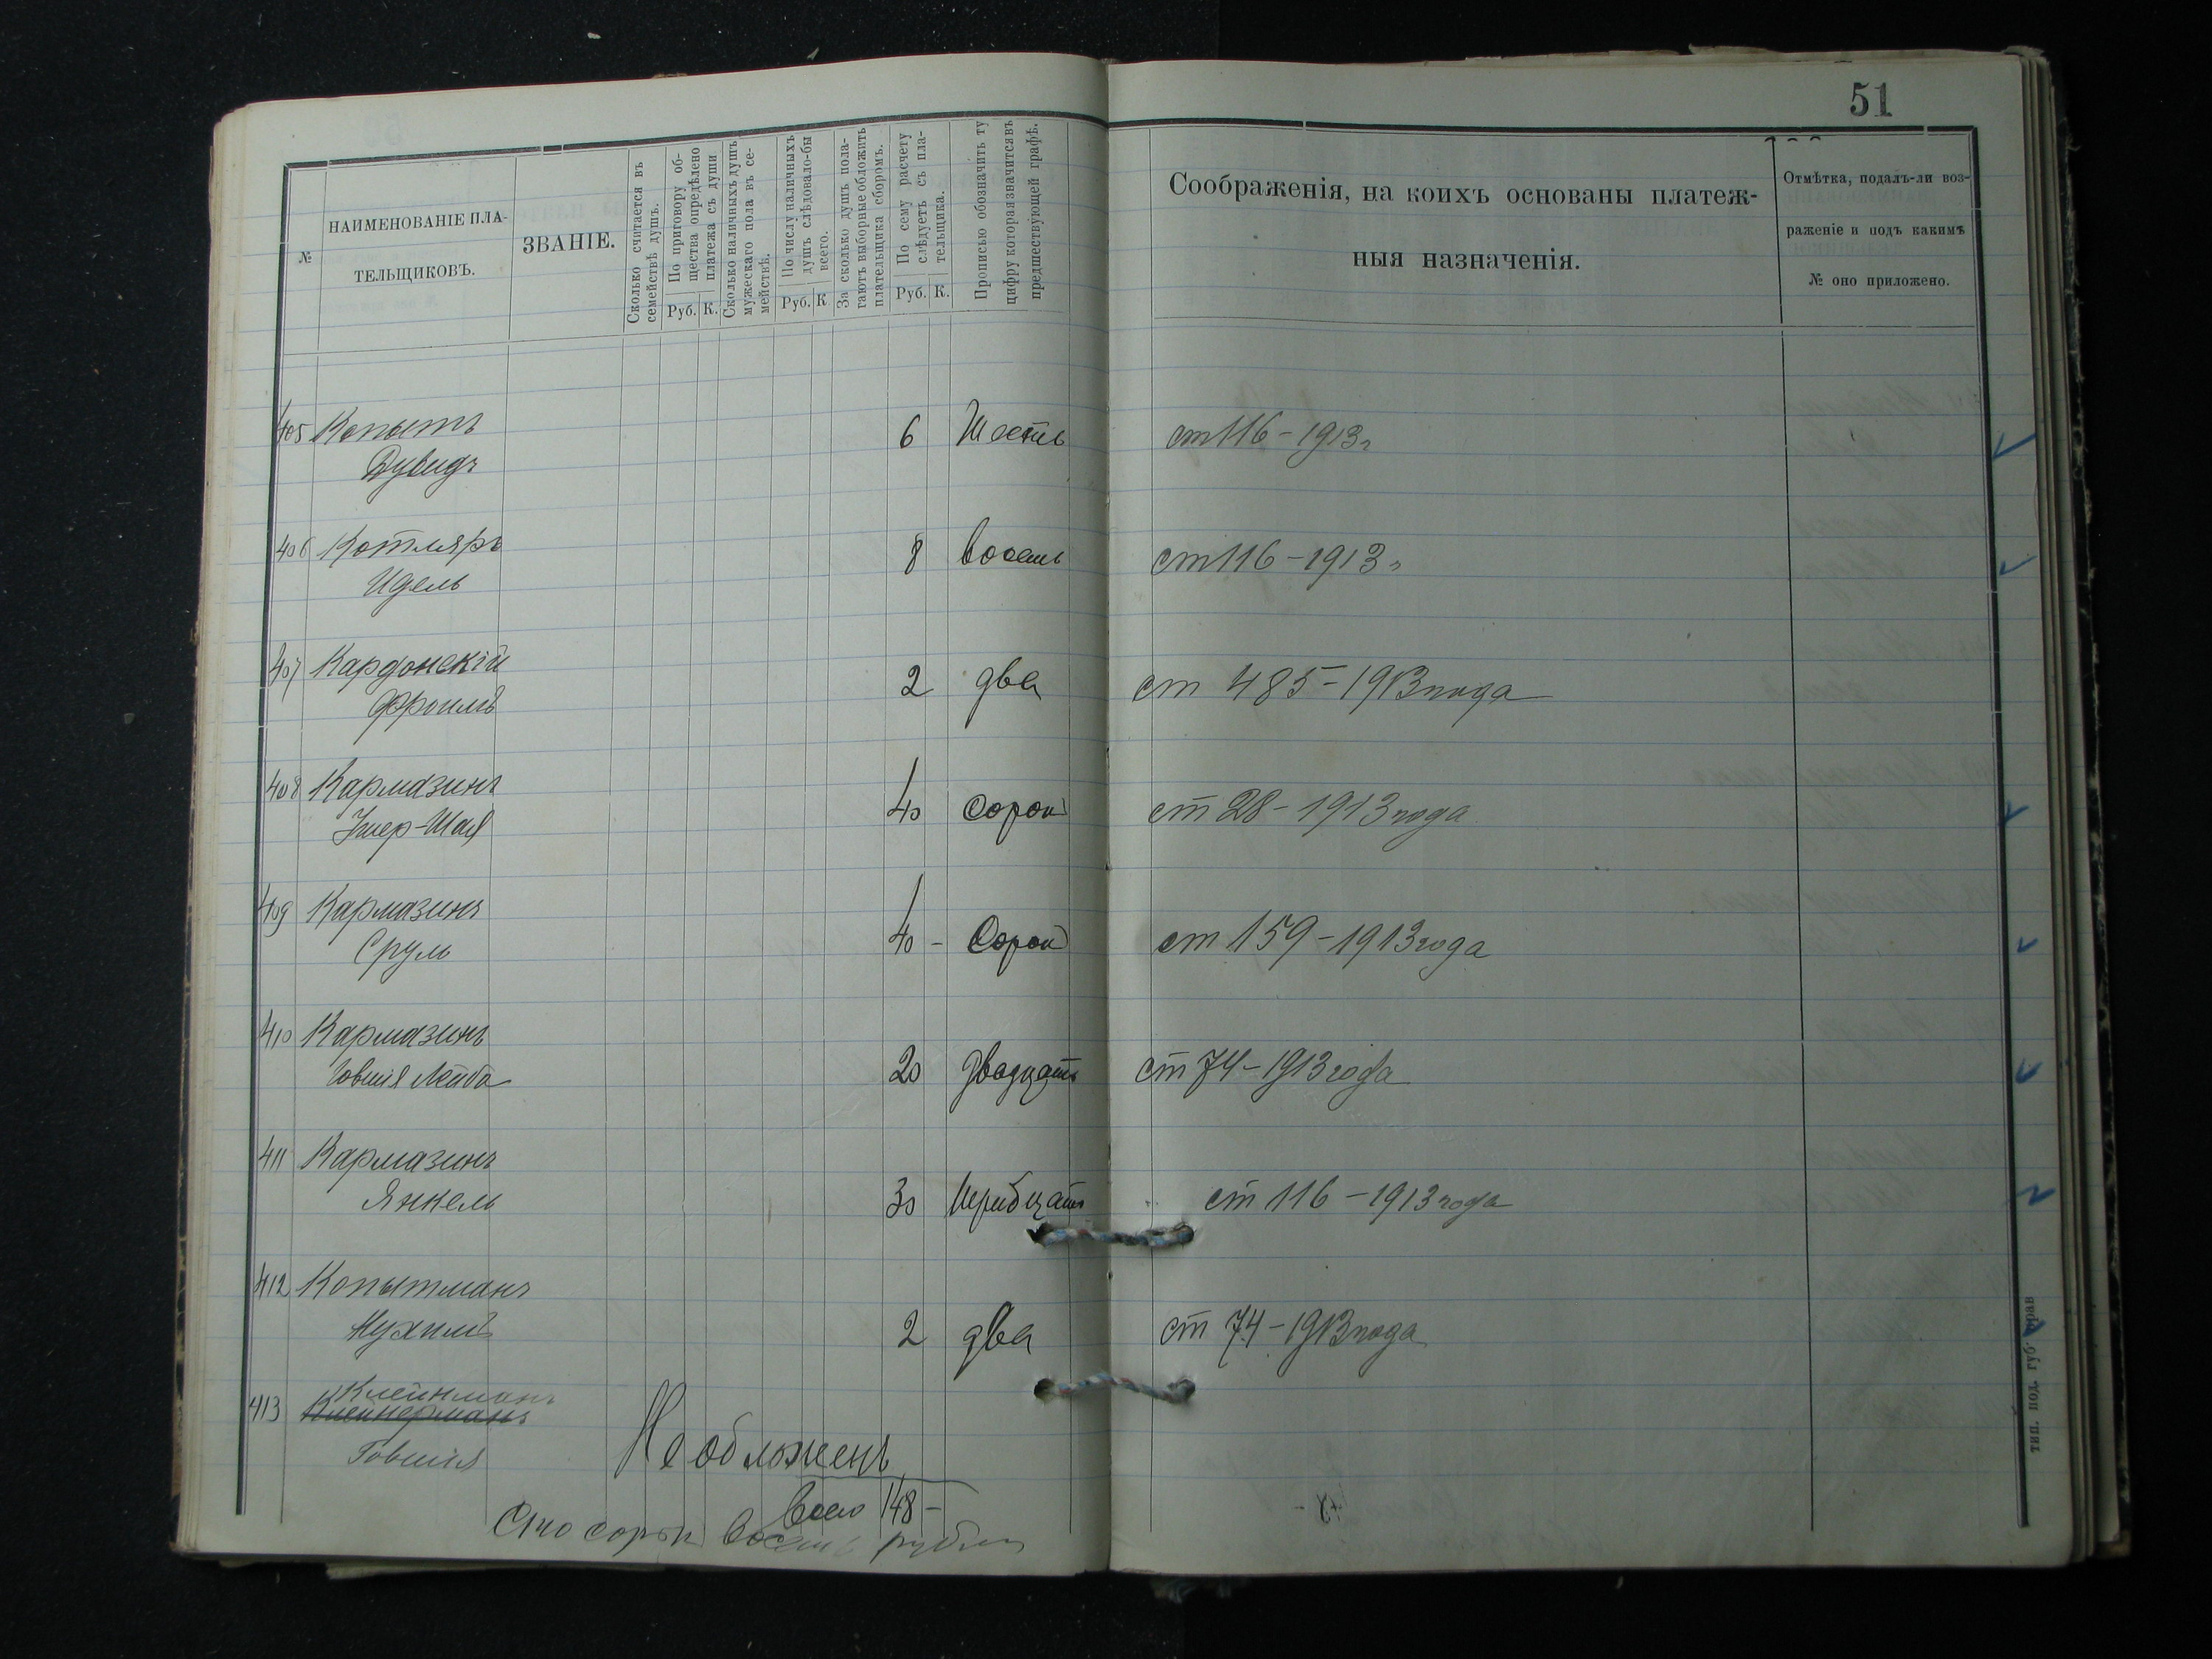 51
№
НАИМЕНОВАНІЕ ПЛА-
ТЕЛЬЩИКОВЪ.
ЗВАНІЕ.
Сколько считается въ
семействѣ душъ.
По приговору об-
щества опредѣлено
платежа съ души
Руб. К.
Сколько наличныхъ душъ
мужескаго пола въ се-
мействѣ.
По числу наличныхъ
душъ слѣдовало-бы
всего.
Руб. К
За сколько душъ пола-
гаютъ выборные обложить
плательщика сборомъ.
По сему расчету
слѣдуетъ съ пла-
тельщика.
Руб. К.
Прописью обозначить ту
цифру которая значится въ
предшествующей графѣ.
Соображенія, на коихъ основаны платеж-
ныя назначенія.
Отмѣтка, подалъ-ли воз-
раженіе и подъ какимъ
№ оно приложено.
405 Копытъ 6 Шесть ст 116 - 1913 г
Дувидъ
406 Котляръ 8 восемь ст 116 - 1913 г
Идель
407 Кардонскій 2 два ст 485 - 1913 года
Фроимъ
408 Кармазинъ 40 сорок ст 28 - 1913 года
-Шая
409 Кармазинъ 40 - Сорок ст 159 - 1913 года
Сруль
410 Кармазинъ 20 двадцать ст 74 - 1913 года
Іовшія Лейба
411 Кармазинъ 30 тридцать ст 116 - 1913 года
Янкель
412 Копытманъ 2 два ст 74 - 1913 года
Нухимъ
Клейнманъ
413 Клейнерманъ
Говшія Не обложенъ
Всего 148 -
Сто сорок восемь рубли
тип. под. губ. прав